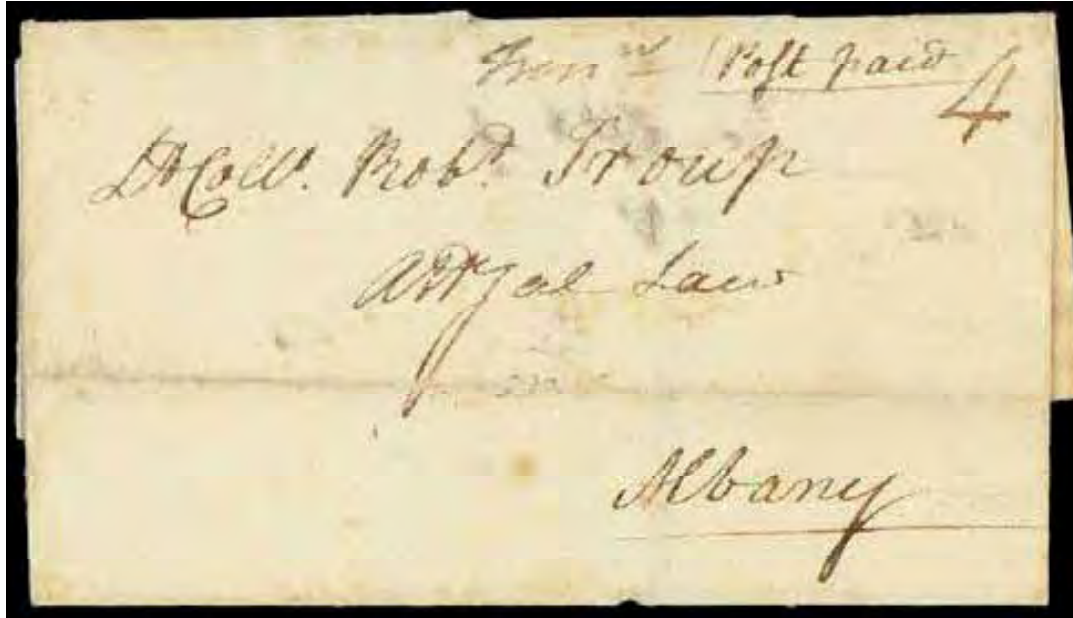 Tren^n Post paid 4
Lt Coll^o. Rob^t. Troup
Att^y at Law
Albany